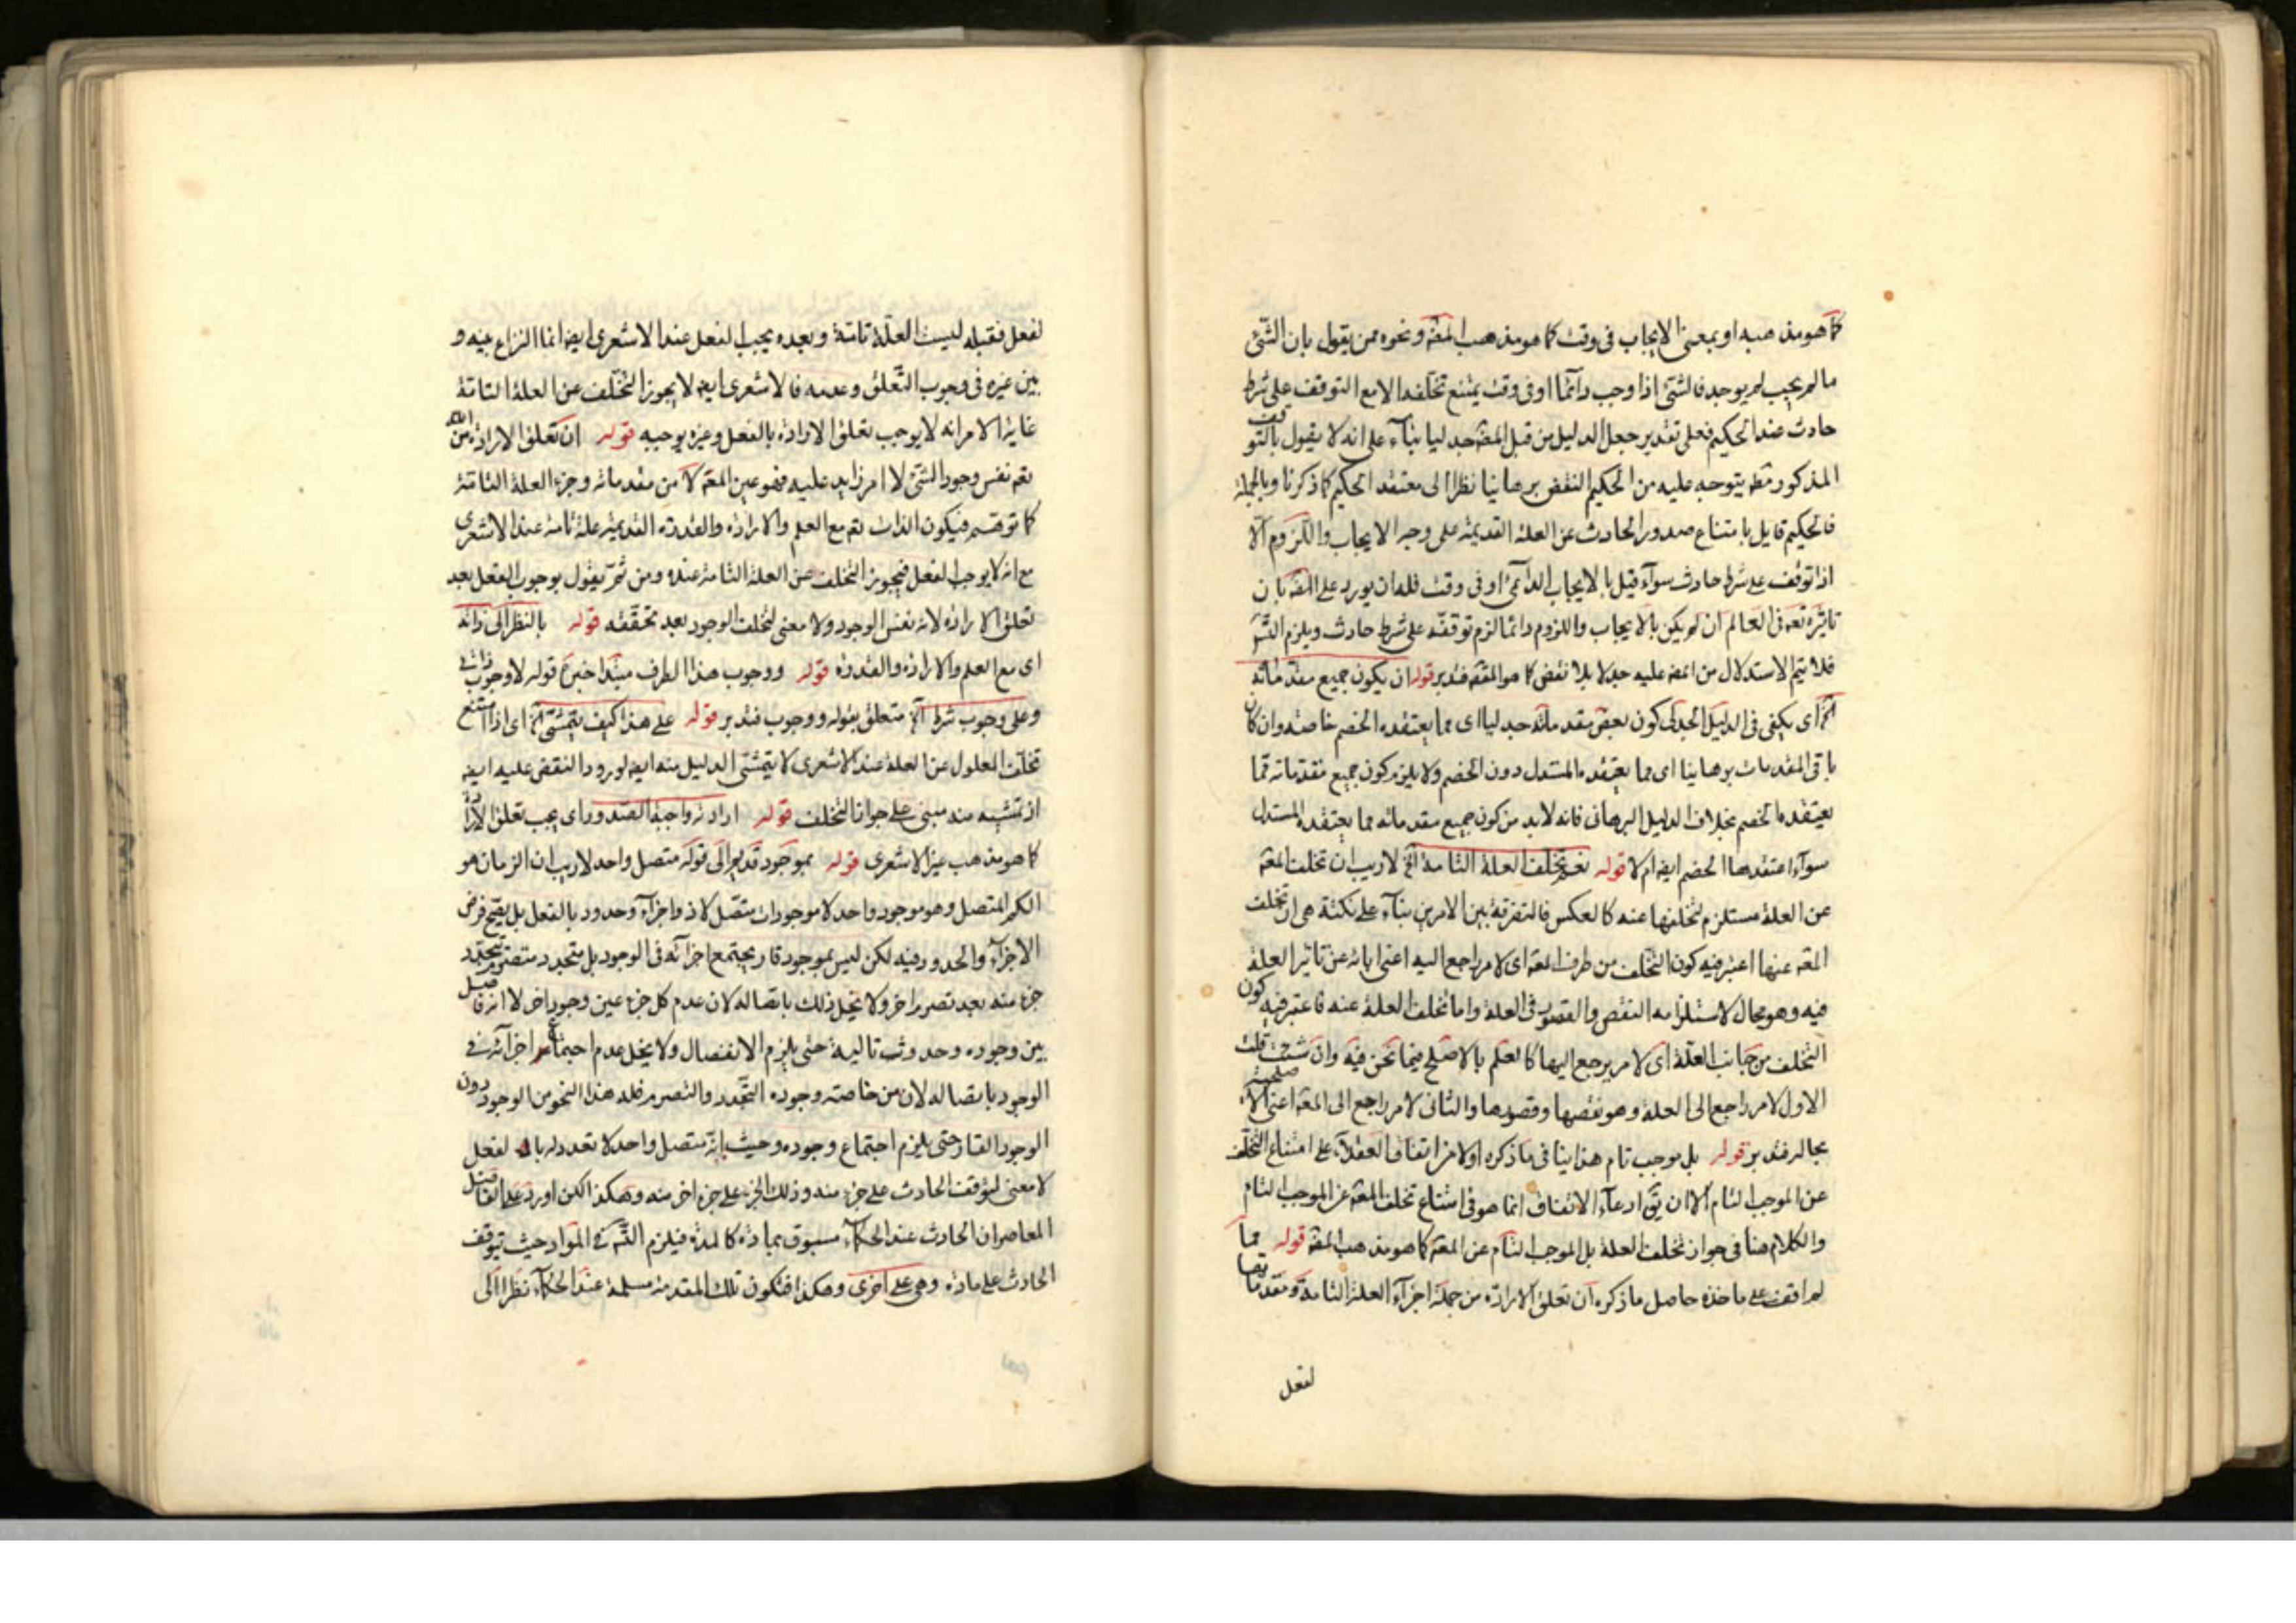 كما هو مذهبه او بمعنى الايجاب فى وقت كما هو مذهب المعتـ ونحوه ممن يقول بان الشئ
ما لم يجب لم يوجد فالشئ اذا وجب دآئما او فى وقت يمتنع تخلفه الا مع التوقف على شرط
حادث عند الحكيم فعلى تقدير جعل الدليل من قبل المعتـ جدليا بنآء على انه لا يقول بالتوقف
المذكور مطـ يتوجه عليه من الحكيم النقض برهانيا نظرا الى معتقد الحكيم كما ذكرنا وبالجملة
فالحكيم قايل بامتناع صدور الحادث عن العلة القديمة على وجه الايجاب واللزوم الا
اذا توقف على شرط حادث سوآء قيل بالايجاب الدآئمى او فى وقت فله ان يورد على المعتـ بان
تاثيره تعـ فى العالم ان لم يكن بالايجاب واللزوم دائما لزم توقفه على شرط حادث ويلزم التسـ
فلا يتم الاستدلال من المعتـ عليه جدلا بلا نقض كما هو المقـ فتدبر قوله ان يكون جميع مقدماته
آلخ اى يكفى فى الدليل الجدلى كون بعض مقدماته جدليا اى مما يعتقده الخصم خاصة وان كان
باقى المقدمات برهانيا اى مما يعتقده المستدل دون الخصم ولا يلزم كون جميع مقدماته مما
يعتقده الخصم بخلاف الدليل البرهانى فانه لا بد من كون جميع مقدماته مما يعتقده المستدل
سوآء اعتقدها الخصم ايضا ام لا قوله نعم تخلف العلة التامة آلخ لا ريب ان تخلف المعـ
عن العلة مستلزم لتخلفها عنه كالعكس فالتفرقة بين الامرين بنآء على نكتة هى ان تخلف
المعـ عنها اعتبر فيه كون التخلف من طرف المعـ اى لامر راجع اليه اعنى ابائه عن تاثير العلة
فيه وهو محال لاستلزامه النقص والقصور فى العلة واما تخلف العلة عنه فاعتبر فيه كون
التخلف من جانب العلة اى لامر يرجع اليها كالعلم بالاصلح فيما نحن فيه وان شئت قلت
الاول لامر راجع الى العلة وهو نقصها وقصورها والثانى لامر راجع الى المعـ اعنى الاصلحية
بحاله فتدبر قوله بل موجب تام هذا ينافى ما ذكره اولا من اتفاق العقلآء على امتناع التخلف
عن الموجب التام الا ان يقـ ادعآء الاتفاق انما هو فى امتناع تخلف المعـ عن الموجب التام
والكلام هنا فى جواز تخلف العلة بل الموجب التام عن المعـ كما هو مذهب المعتـ قوله مما
لم اقف على ماخذه حاصل ما ذكره ان تعلق الارادة من جملة اجزآء العلة التامة ومقدماتها
لفعل
لفعل فقبله ليست العلة تامة وبعده يجب الفعل عند الاشعرى ايضا انما النزاع بينه و
بين غيره فى وجوب التعلق وعدمه فالاشعرى ايضا لا يجوز التخلف عن العلة التامة
غاية الامر انه لا يوجب تعلق الارادة بالفعل وغيره يوجبه قوله ان تعلق الارادة من الله
تعـ نفس وجود الشئ لا امر زايد عليه فهو عين المعـ لا من مقدماته وجزء العلة التامة
كما توهم فيكون الذات تعـ مع العلم والارادة والقدرة القديمة علة تامة عند الاشعرى
مع انه لا يوجب الفعل فيجوز التخلف عن العلة التامة عنده ومن ثم يقول بوجوب الفعل بعد
تعلق الارادة لانه نفس الوجود ولا معنى لتخلف الوجود بعد تحققه قوله بالنظر الى ذاته
اى مع العلم والارادة والقدرة قوله ووجوب هذا الطرف مبتدا خبره قوله لا وجوب ذاتى
وعلى وجوب شرط آلخ متعلق بقوله ووجوب فتدبر قوله على هذا كيف يتمشى آلخ اى اذا امتنع
تخلف المعلول عن العلة عند الاشعرى لا يتمشى الدليل منه ايضا لورود النقض عليه ايضا
اذ تمشيه منه مبنى على جواز التخلف قوله ارادته واجبة الصدور اى يجب تعلق الارادة
كما هو مذهب غير الاشعرى قوله بموجود قديم الى قوله متصل واحد لا ريب ان الزمان هو
الكم المتصل وهو موجود واحد لا موجودات متصل لا ذو اجزآء وحدود بالفعل بل يصح فرض
الاجزآء والحدود فيه لكن ليس بموجود قار يجتمع اجزائه فى الوجود بل متجدد متصرم يتجدد
جزء منه بعد تصرم اخر ولا يخل ذلك باتصاله لان عدم كل جزء عين وجود اخر لا انه فاصل
بين وجوده وحدوث تاليه حتى يلزم الانفصال ولا يخل عدم اجتماع اجزآئه فى
الوجود باتصاله لان من خاصته وجوده التجدد والتصرم فله هذا النحو من الوجود دون
الوجود القار حتى يلزم اجتماع وجوده وحيث انه متصل واحد لا تعدد له بالفعل
لا معنى لتوقف الحادث على جزء منه وذلك الجزء على جزء اخر منه وهكذا لكن اورد على الفاضل
المعاصر ان الحادث عند الحكمآء مسبوق بمادة كالمدة فيلزم التسـ فى المواد حيث يتوقف
الحادث على مادة وهى على اخرى وهكذا فتكون تلك المقدمة مسلمة عند الحكمآء نظرا الى